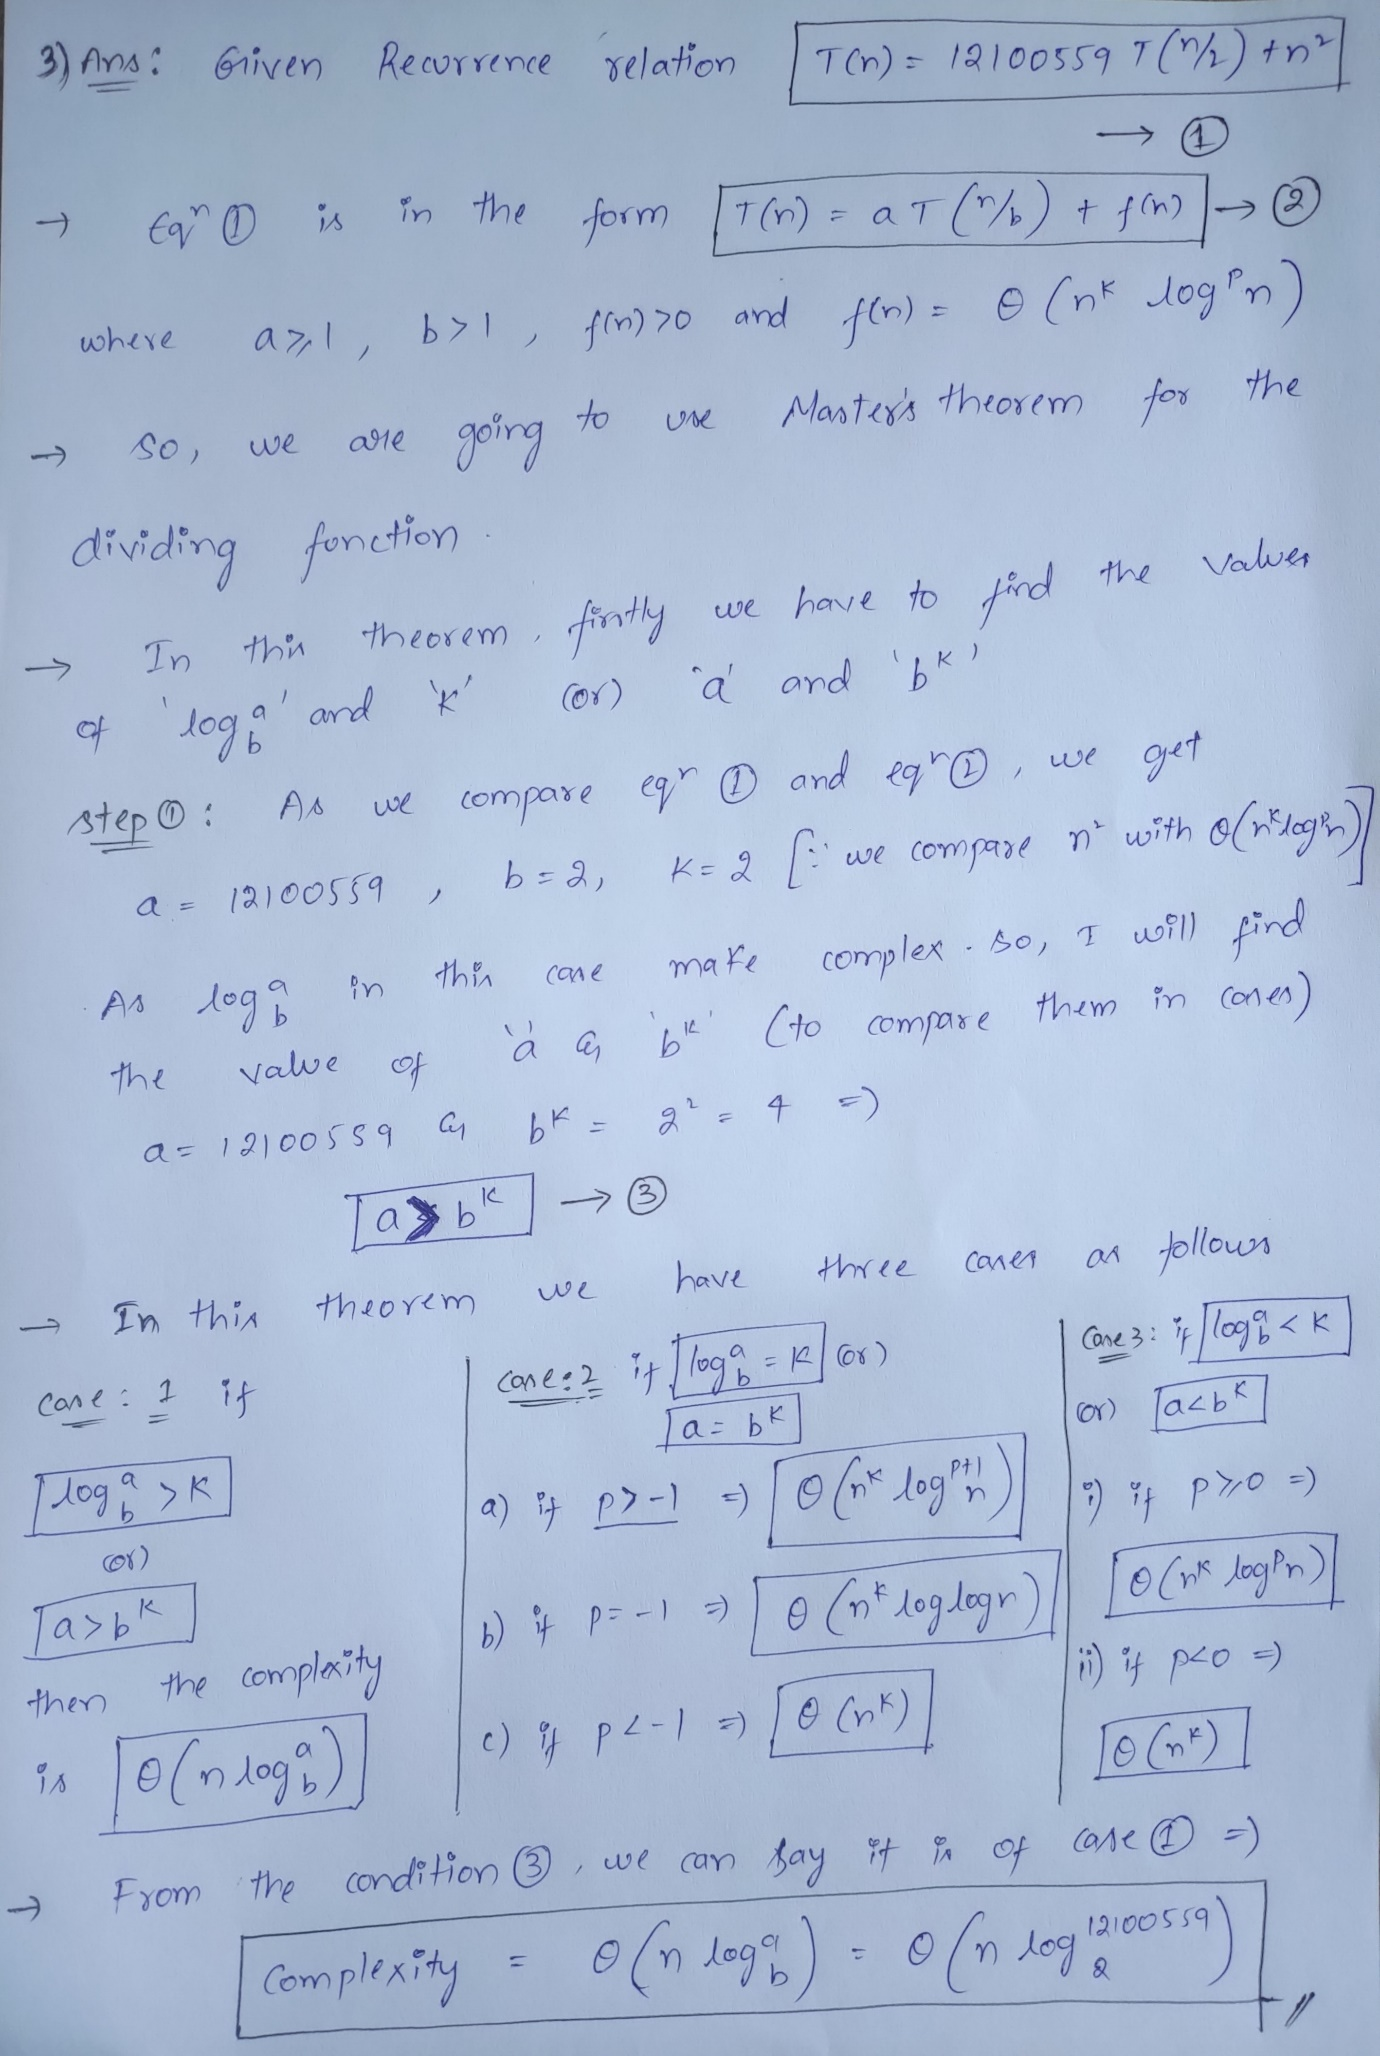 3) Ans: Given Recurrence relation T(n) = 12100559 T(n/2) + n²
→ ①
→ Eqⁿ ① is in the form T(n) = a T(n/b) + f(n) → ②
where a ≥ 1, b > 1, f(n) > 0 and f(n) = θ (n^k log^p n)
→ So, we are going to use Master's theorem for the
dividing function.
→ In this theorem, firstly we have to find the values
of 'log_b^a' and 'k' (or) 'a' and 'b^k'
step ①: As we compare eqⁿ ① and eqⁿ ②, we get
a = 12100559, b = 2, k = 2 [∵ we compare n² with θ(n^k log^p n)]
As log_b^a in this case make complex. So, I will find
the value of 'a' & 'b^k' (to compare them in cases)
a = 12100559 & b^k = 2² = 4 =>
a > b^k → ③
→ In this theorem we have three cases as follows
case: 1 if
log_b^a > k
(or)
a > b^k
then the complexity
is θ(n log_b^a)
case: 2 if log_b^a = k (or)
a = b^k
a) if p > -1 => θ (n^k log^{p+1} n)
b) if p = -1 => θ (n^k log log n)
c) if p < -1 => θ (n^k)
Case 3: if log_b^a < k
(or) a < b^k
i) if p ≥ 0 =>
θ (n^k log^p n)
ii) if p < 0 =>
θ (n^k)
→ From the condition ③, we can say it is of case ① =>
Complexity = θ (n log_b^a) = θ (n log_2^12100559)